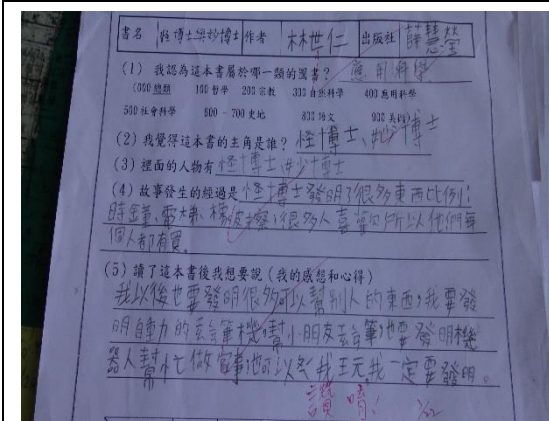 書名 怪博士與妙博士 作者 林世仁 出版社 薛慧瑩
(1) 我認為這本書屬於哪一類的叢書? 應用科學
000 總類 100 哲學 200 宗教 300 自然科學 400 應用科學
500 社會科學 600-700 史地 800 語文 900 美術
(2) 我覺得這本書的主角是誰? 怪博士、妙博士
(3) 裡面的人物有 怪博士、妙博士
(4) 故事發生的經過是 怪博士發明了很多東西比例:
時金筆、 很多人喜 所以他們每
個人都有買。
(5) 讀了這本書後我想要說 (我的感想和心得)
我以後也要發明很多可以幫別人的東西,我要發
明自動的 筆機,幫小朋友 筆,也要發明機
器人幫忙做家事,也可以 我玩,我一定要發明。
讚唷!